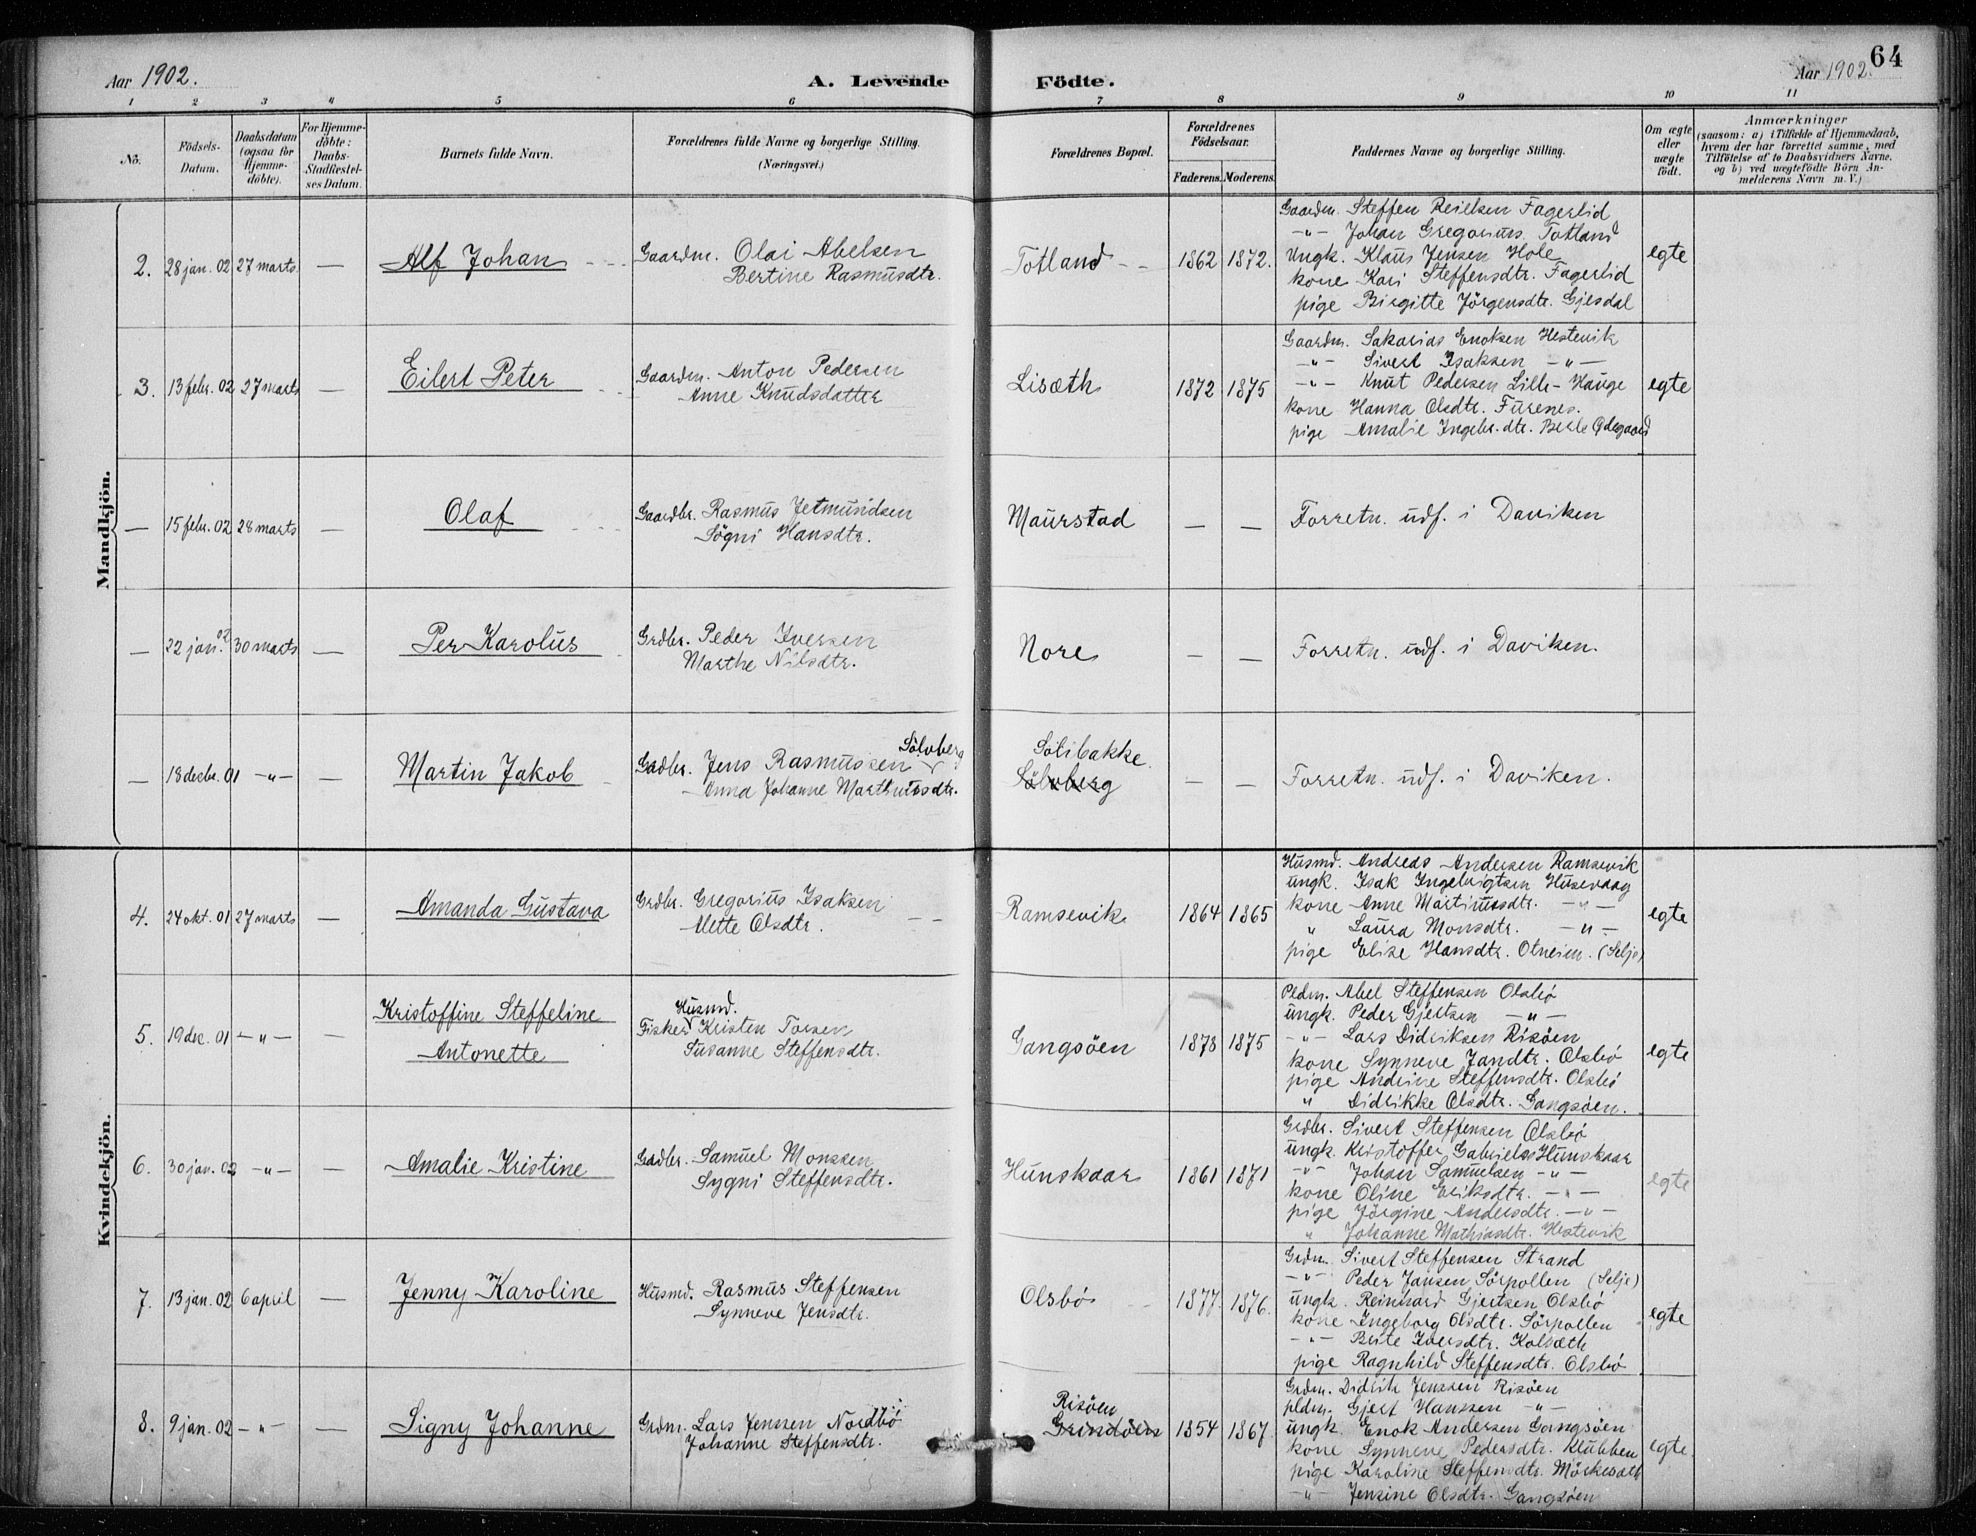 Aar 1902.
A. Levende Födte.
Aar 1902.
64
1 2 3 4 5 6 7 8 9 10 11
No.
Födsels-Datum.
Daabsdatum (ogsaa for Hjemme-döbte).
For Hjemme-döbte: Daabs-Stadfæstel-ses Datum.
Barnets fulde Navn.
Forældrenes fulde Navne og borgerlige Stilling.
(Næringsvei.)
Forældrenes Bopæl.
Forældrenes Födselsaar.
Faderens. Moderens.
Faddernes Navne og borgerlige Stilling.
Om ægte eller uægte födt.
Anmærkninger
(saasom: a) i Tilfælde af Hjemmedaab,
hvem der har forrettet samme, med
Tilföielse af to Daabsvidners Navne,
og b) ved uægtefödte Börn An-
melderens Navn m. V.)
Mandkjön.
2. 28 jan. 02 27 marts — Alf Johan
Gaardm. Olai Abelsen
Bertine Rasmusdtr.
Totland 1862 1872.
Gaardm. Steffen Reielsen Fagerlid
—"— Johan Gregorius Totland
Ungk. Klaus Jensen Hole
kone Kari Steffensdtr. Fagerlid
pige Birgitte Jörgensdtr. Gjesdal
egte
3. 13 febr. 02 27 marts — Eilert Peter
Gaardm. Anton Pedersen
Anne Knudsdatter
Lisæth 1872 1875
Gaardm. Sakarias Enoksen Hestevik
—"— Sivert Isaksen —"—
—"— Knut Pedersen Lille-Hauge
kone Hanna Olsdtr. Furenes.
pige Amalie Ingebr.dtr. Berle Ødegaard
egte
— 15 febr. 02 28 marts — Olaf
Gaardbr. Rasmus Jetmundsen
Sögni Hansdtr.
Maurstad — —
Forretn. udf. i Daviken
— 22 jan. 02 30 marts — Per Karolus
Grdbr. Peder Iversen
Marthe Nilsdtr.
Nore — —
Forretn. udf. i Daviken.
— 18 decbr. 01 —"— — Martin Jakob
Sölvberg
Grdbr. Jens Rasmussen
Anna Johanne Marthinusdtr.
Solibakke.
Sölvberg — —
Forretn. udf. i Daviken.
Kvindekjön.
4. 24 okt. 01 27 marts — Amanda Gustava
Grdbr. Gregorius Isaksen
Mette Olsdtr.
Ramsevik 1864 1865
Husmd. Andreas Andersen Ramsevik
ungk. Isak Ingebrigtsen Husevaag
kone Anne Martinusdtr. —"—
" Laura Monsdtr. —"—
pige Elise Hansdtr. Otneim. (Selje)
egte
5. 19 dec. 01 —"— — Kristoffine Steffeline
Antonette
Husmd.
Fisker Kristen Torsen
Susanne Steffensdtr.
Gangsöen 1878 1875
Pldm. Abel Steffensen Olsbö
ungk. Peder Gjertsen —"—
—"— Lars Didriksen Risöen
kone Synneve Jansdtr. Olsbö
pige Andrine Steffensdtr. Olsbö
" Didrikke Olsdtr. Gangsöen.
egte
6. 30 jan. 02 —"— — Amalie Kristine
Grdbr. Samuel Monssen
Sygni Steffensdtr.
Hunskaar 1861 1871
Grdbr. Sivert Steffensen Olsbö
ungk. Kristoffer Gabrielss Hunskaar
—"— Johan Samuelsen —"—
kone Oline Eriksdtr. —"—
pige Jörgine Andersdtr. —"—
" Johanne Mathiasdtr. Hestevik
egte
7. 13 jan. 02 6 april — Jenny Karoline
Husmd. Rasmus Steffensen
Synneve Jensdtr.
Olsbö 1877. 1876.
Grdm. Sivert Steffensen Strand
—"— Peder Jansen Sörpollen (Selje)
ungk. Reinhard Gjertsen Olsbö
kone Ingeborg Olsdtr. Sörpollen
—"— Berte Iversdtr. Kolsæth
pige Ragnhild Steffensdtr. Olsbö
egte
8. 9 jan. 02 —"— — Signy Johanne
Grdm. Lars Jensen Nordbö
Johanne Steffensdtr.
Risöen
Grindöen 1854 1867.
Grdm. Didrik Jenssen Risöen
pldm. Gjert Hanssen —"—
ungk. Enok Andersen Gangsöen
kone Synneve Pedersdtr. Klubben
pige Karoline Steffensdtr. Mörkesæth
—"— Jensine Olsdtr. Gangsöen
egte